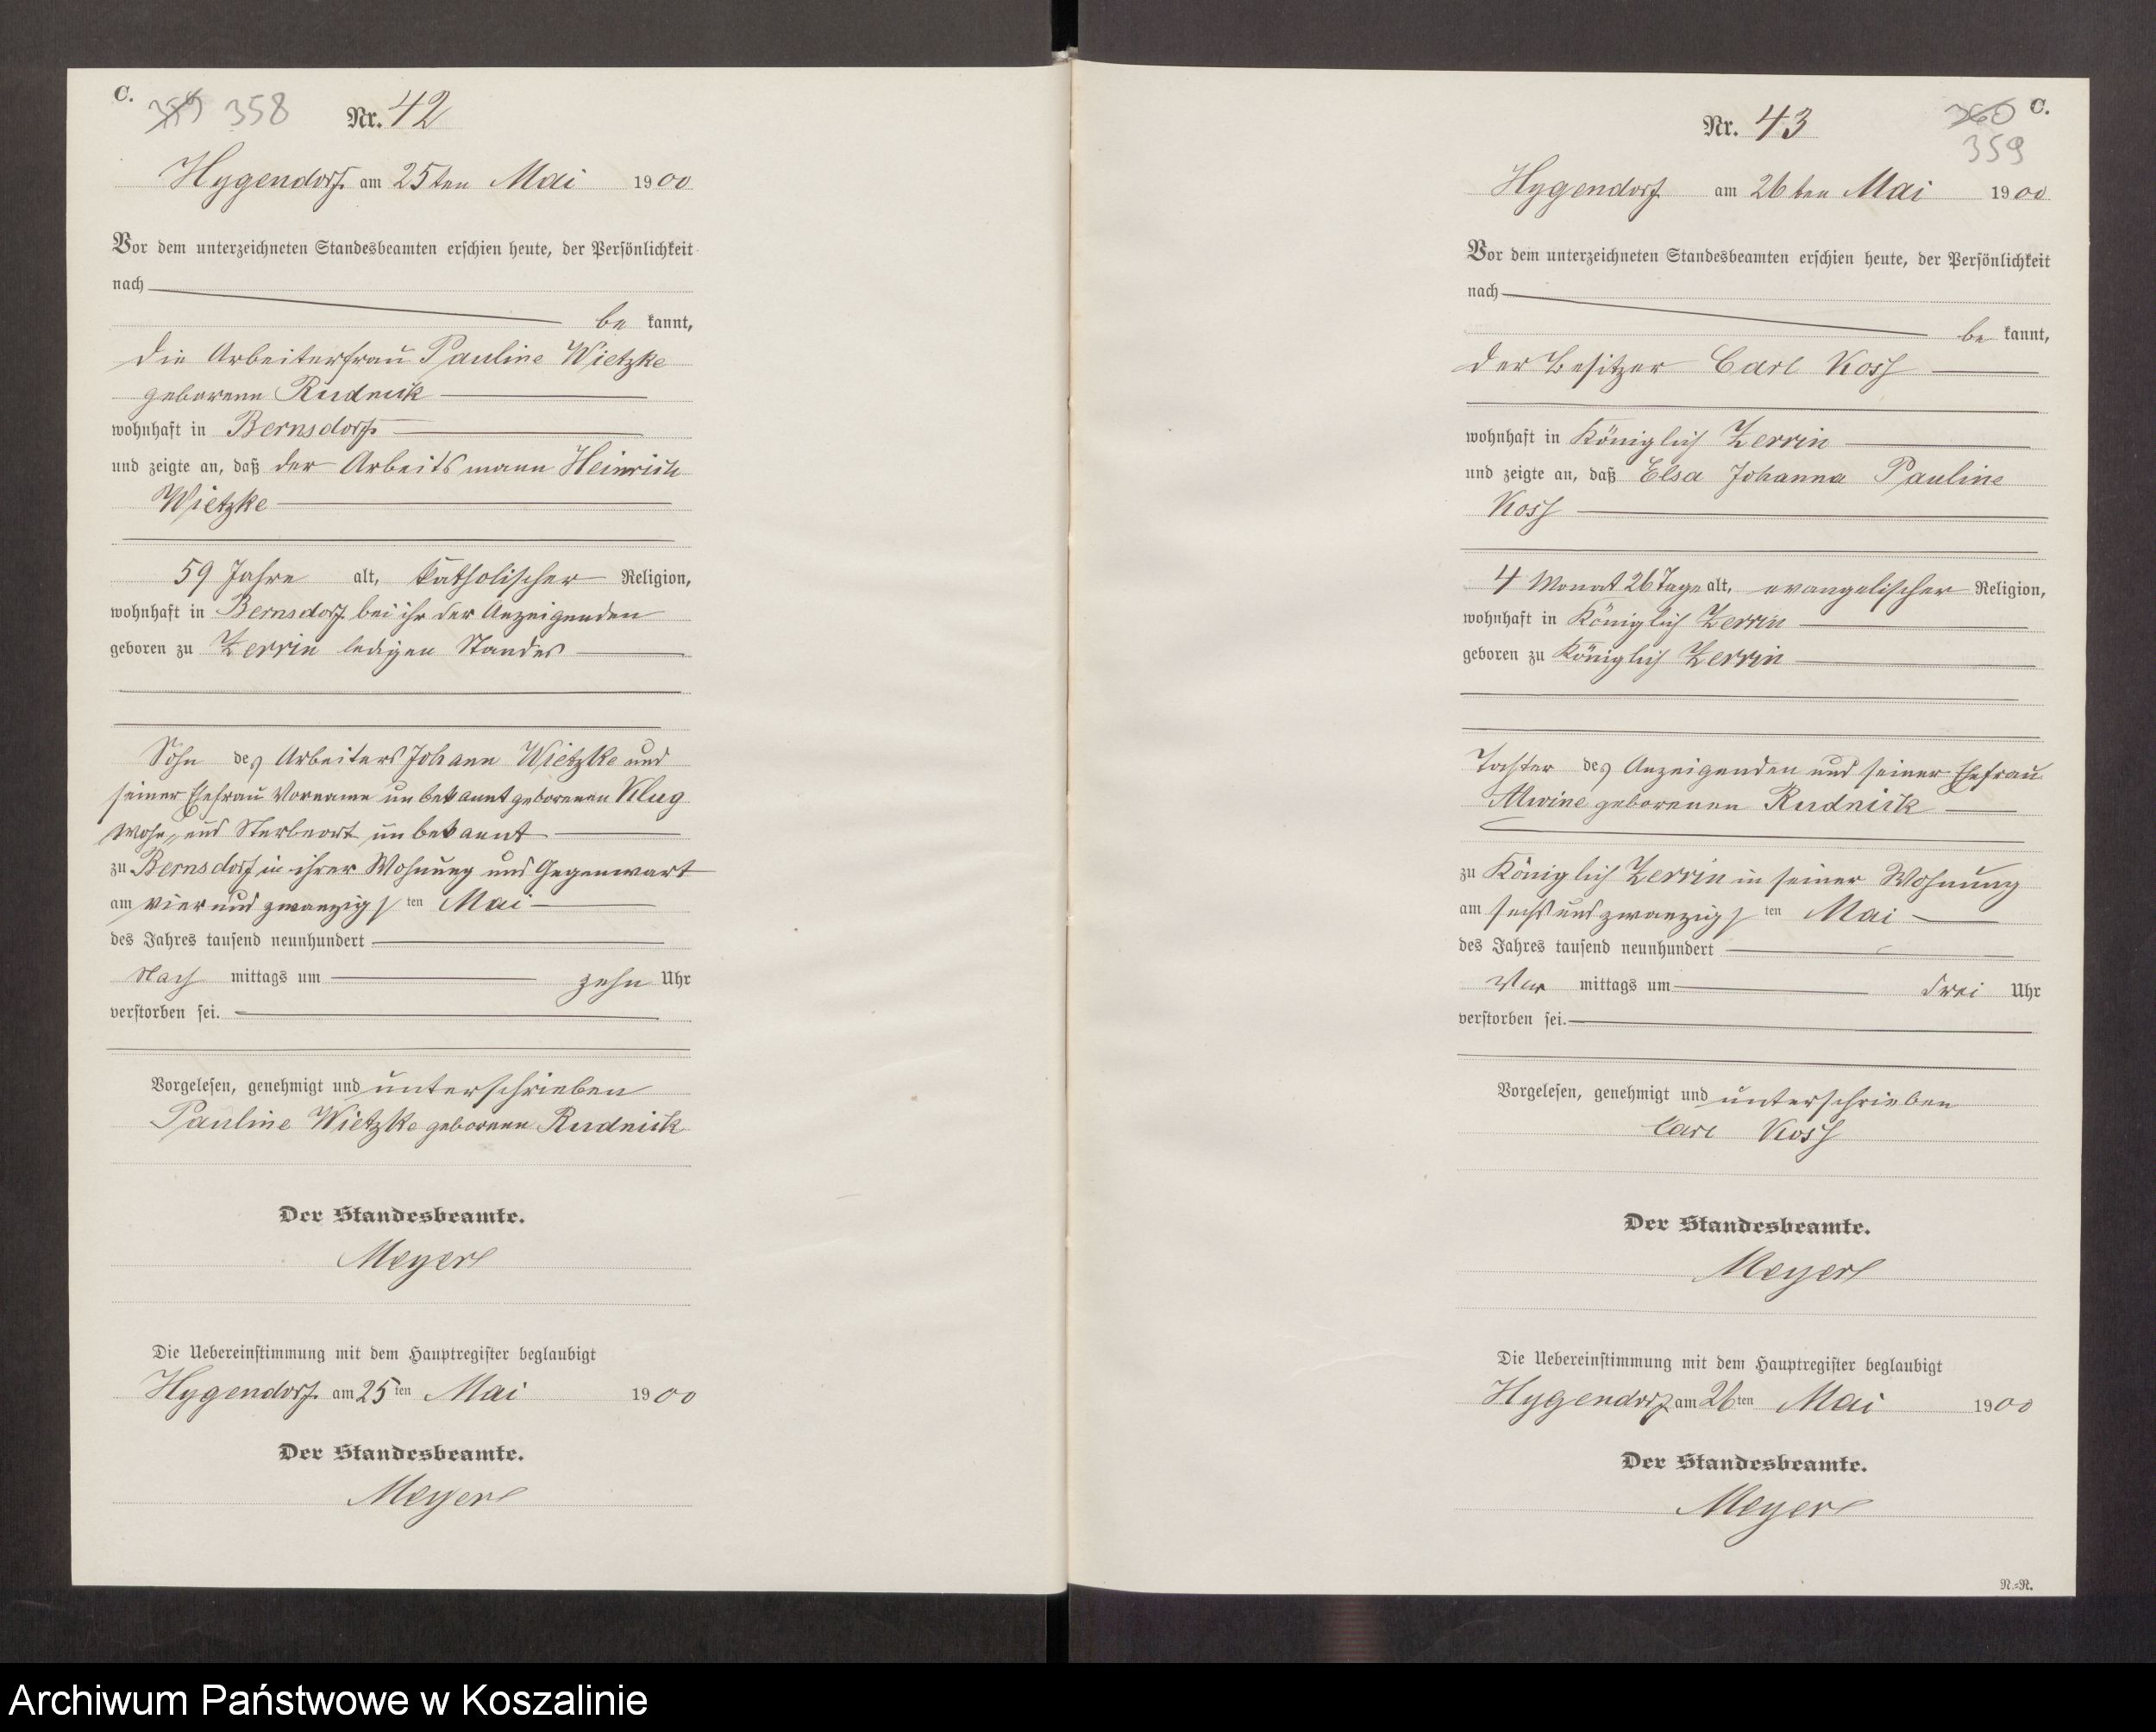 C.
359 358 Nr. 42
Hygendorf am 25ten Mai 1900
Vor dem unterzeichneten Standesbeamten erschien heute, der Persönlichkeit
nach
be kannt,
die Arbeiterfrau Pauline Wietzke
geborene Rudnick
wohnhaft in Bernsdorf
und zeigte an, daß der Arbeitsmann Heinrich
Wietzke
59 Jahre alt, katholischer Religion,
wohnhaft in Bernsdorf bei ihr der Anzeigenden
geboren zu Zerrin ledigen Standes
Sohn des Arbeiters Johann Wietzke und
seiner Ehefrau Vorname unbekannt geborenen Klug
Wohn- und Sterbeort unbekannt
zu Bernsdorf in ihrer Wohnung und Gegenwart
am vier und zwanzigsten Mai
des Jahres tausend neunhundert
Nach mittags um zehn Uhr
verstorben sei.
Vorgelesen, genehmigt und unterschrieben
Pauline Wietzke geborene Rudnick
Der Standesbeamte.
Meyer
Die Uebereinstimmung mit dem Hauptregister beglaubigt
Hygendorf am 25ten Mai 1900
Der Standesbeamte.
Meyer
C.
Nr. 43 360
359
Hygendorf am 26ten Mai 1900
Vor dem unterzeichneten Standesbeamten erschien heute, der Persönlichkeit
nach
be kannt,
der Besitzer Carl Koss
wohnhaft in Königlich Zerrin
und zeigte an, daß Elsa Johanna Pauline
Koss
4 Monat 26 Tage alt, evangelischer Religion,
wohnhaft in Königlich Zerrin
geboren zu Königlich Zerrin
Tochter des Anzeigenden und seiner Ehefrau
Alwine geborenen Rudnick
zu Königlich Zerrin in seiner Wohnung
am sechs und zwanzigsten Mai
des Jahres tausend neunhundert
Vor mittags um drei Uhr
verstorben sei.
Vorgelesen, genehmigt und unterschrieben
Carl Koss
Der Standesbeamte.
Meyer
Die Uebereinstimmung mit dem Hauptregister beglaubigt
Hygendorf am 26ten Mai 1900
Der Standesbeamte.
Meyer
N.=N.
Archiwum Państwowe w Koszalinie